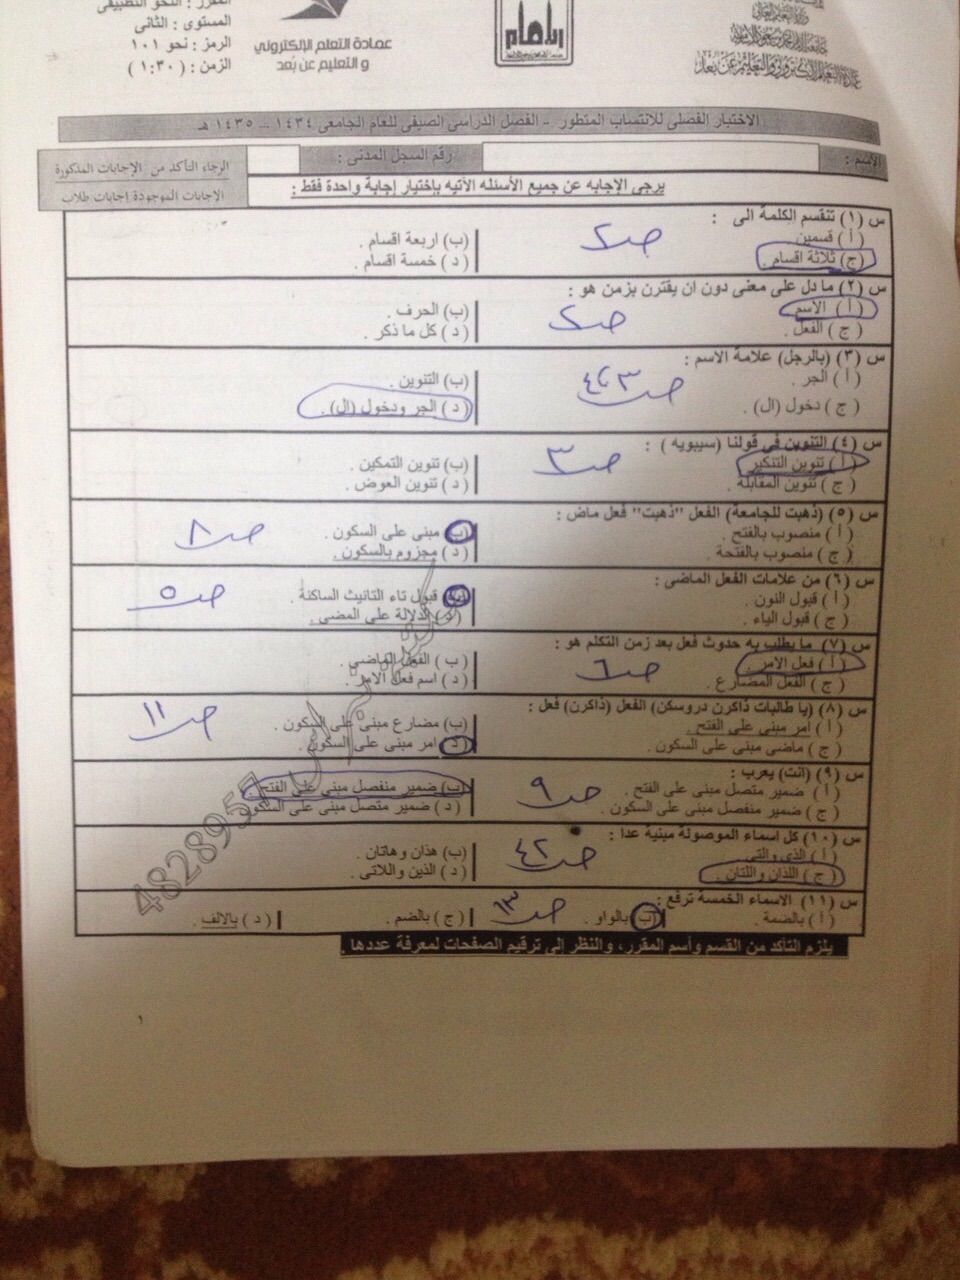 المقرر : النحو التطبيقي
المستوى : الثانى
الرمز : نحو ١٠١
الزمن : ( ١:٣٠ )
عمادة التعلم الإلكتروني
و التعليم عن بُعد
الاختبار الفصلى للانتساب المتطور - الفصل الدراسى الصيفى للعام الجامعى ١٤٣٤ - ١٤٣٥ هـ
الإسم :
رقم السجل المدنى :
الرجاء التأكد من الإجابات المذكورة
الإجابات الموجودة إجابات طلاب
يرجى الإجابه عن جميع الأسئله الأتيه بإختيار إجابة واحدة فقط :
س (١) تنقسم الكلمة الى :
( أ ) قسمين
(ب) اربعة اقسام .
(ج) ثلاثة اقسام .
( د ) خمسة اقسام .
ص٢
س (٢) ما دل على معنى دون ان يقترن بزمن هو :
( أ ) الاسم
(ب) الحرف .
( ج ) الفعل .
( د ) كل ما ذكر .
ص٢
س (٣) (بالرجل) علامة الاسم :
( أ ) الجر .
(ب) التنوين .
( ج ) دخول (ال) .
( د ) الجر ودخول (ال) .
ص ٣،٤
س (٤) التنوين في قولنا (سيبويه ) :
( أ ) تنوين التنكير
(ب) تنوين التمكين
( ج ) تنوين المقابلة .
( د ) تنوين العوض .
ص٣
س (٥) (ذهبت للجامعة) الفعل "ذهبت" فعل ماض :
( أ ) منصوب بالفتح .
(ب) مبنى على السكون .
( ج ) منصوب بالفتحة .
( د ) مجزوم بالسكون .
ص ٨
س (٦) من علامات الفعل الماضى :
( أ ) قبول النون .
(ب) قبول تاء التانيث الساكنة .
( ج ) قبول الياء .
( د ) الدلالة على المضى .
ص ٥
س (٧) ما يطلب به حدوث فعل بعد زمن التكلم هو :
( أ ) فعل الامر .
( ب ) الفعل الماضى .
( ج ) الفعل المضارع .
( د ) اسم فعل الامر .
ص ٦
س (٨) (يا طالبات ذاكرن دروسكن) الفعل (ذاكرن) فعل :
( أ ) امر مبنى على الفتح .
(ب) مضارع مبنى على السكون .
( ج ) ماضى مبنى على السكون .
( د ) امر مبنى على السكون .
ص ١١
س (٩) (انت) يعرب :
( أ ) ضمير متصل مبنى على الفتح .
(ب) ضمير منفصل مبنى على الفتح .
( ج ) ضمير منفصل مبنى على السكون .
( د ) ضمير متصل مبنى على السكون .
ص ٩
س (١٠) كل اسماء الموصولة مبنية عدا :
( أ ) الذى والتى
(ب) هذان وهاتان .
( ج ) اللذان واللتان .
( د ) الذين واللاتى .
ص ٤٢
س (١١) الاسماء الخمسة ترفع :
( أ ) بالضمة .
(ب) بالواو .
( ج ) بالضم .
( د ) بالالف .
ص ١٣
4828955
يلزم التأكد من القسم وأسم المقرر، والنظر إلى ترقيم الصفحات لمعرفة عددها .
١